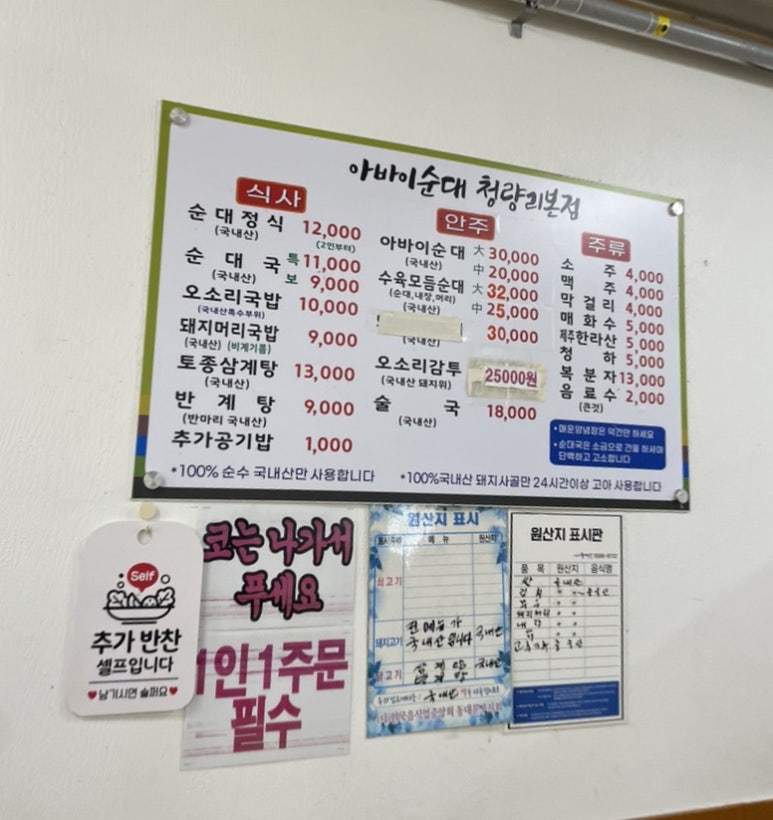 아바이순대 청량리본점
식사
순대정식 12,000
(국내산) (2인부터)
순대국 특 11,000
(국내산) 보 9,000
오소리국밥 10,000
(국내산특수부위)
돼지머리국밥 9,000
(국내산) (비계기름)
토종삼계탕 13,000
(국내산)
반계탕 9,000
(반마리 국내산)
추가공기밥 1,000
안주
아바이순대 大 30,000
(국내산) 中 20,000
수육모듬순대 大 32,000
(순대,내장,머리)
(국내산) 中 25,000
30,000
(국내산)
오소리감투 25000원
(국내산 돼지위)
술국 18,000
(국내산)
주류
소주 4,000
맥주 4,000
막걸리 4,000
매화수 5,000
제주한라산 5,000
청하 5,000
복분자 13,000
음료수 2,000
(큰것)
• 매운양념장은 약간만 하세요
• 순대국은 소금으로 간을 하셔야
담백하고 고소합니다
*100% 순수 국내산만 사용합니다
*100%국내산 돼지사골만 24시간이상 고아 사용합니다
Self
추가 반찬
셀프입니다
♥남기시면 슬퍼요♥
코는 나가서
푸세요
1인 1주문
필수
원산지 표시
메뉴 원산지
쇠고기
돼지고기 전메뉴가
국내산입니다 국내산
닭고기 삼계탕 국내산
반계탕
국내산
원산지 표시판
품목 원산지 음식명
쌀 국내산
돼지머리 〃 〃